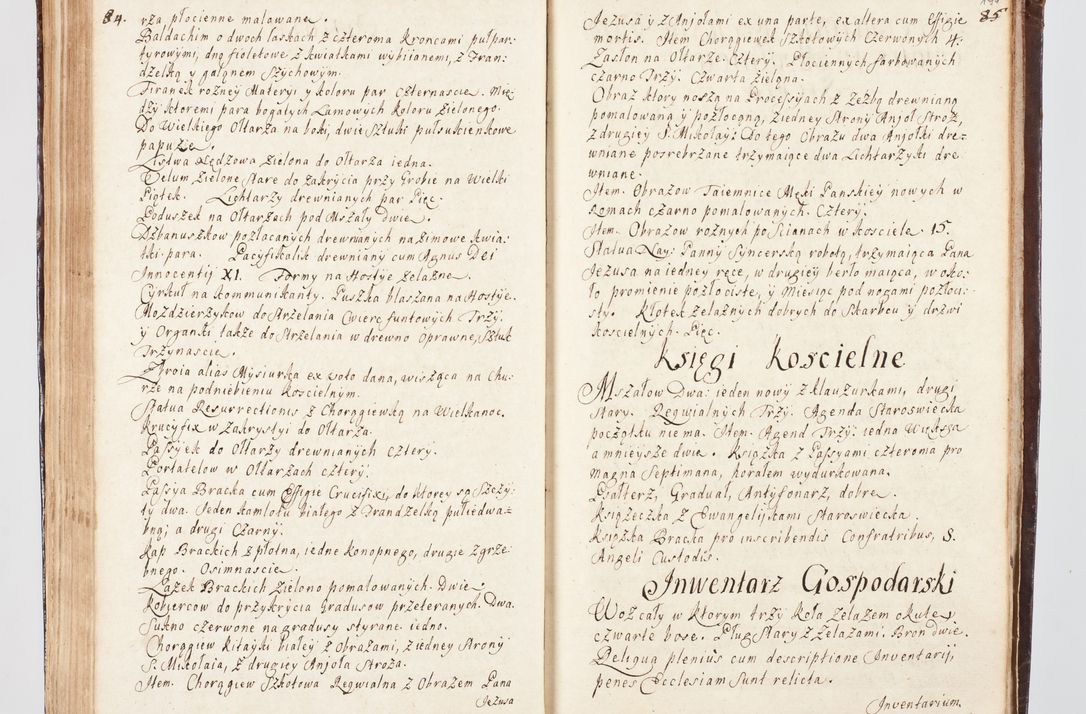 84.
rza, płocienne malowane.
Baldachim o dwoch laskach z czteroma Kroncami pułpar:
tyrowymi, dno fioletowe z kwiatkami wybiianemi, z Fran:
dzelką y galonem Szychowym.
Firanek rozney Materyi y koloru par czternascie. Mię:
dzy ktoremi para bogatych Lamowych Koloru Zielonego.
Do Wielkiego Ołtarza na boki, dwie Sztuki pułsukienkowe
papuzie.
Listwa Zielona do Ołtarza iedna.
Velum Zielone Stare do zakrycia przy Grobie na Wielki
Piątek. Lichtarzy drewnianych par Pięc.
Poduszek na Ołtarzach pod Mszały dwie.
Dzbanuszkow pozłacanych drewnianych na Zimowe kwia:
tki para. Pacyfikalik drewniany cum Agnus Dei
Innocentij XI. Formy na Hostye żelazne.
Cyrkuł na kommunikanty. Puszka blaszana na Hostye.
Mozdzierzykow do Strzelania Cwierc funtowych Trzy.
y Organki także do Strzelania w drewno Oprawne, Sztuk
Trzynascie.
Zbroia alias Mysiurka ex voto dana, wisząca na Chu:
rze na podniebieniu Koscielnym.
Statua Resurrectionis z Chorągiewką na Wielkanoc.
Krucyfix w Zakrystyi do Ołtarza.
Passyiek do Ołtarzy drewnianych cztery.
Portatelow w Ołtarzach cztery.
Passya Bracka cum Effigie Crucifixi, do ktorey są Szczy:
ty dwa. Jeden Kamlotu białego z Frandzelką pułiedwa=
bną; a drugi Czarny.
Kap Brackich z płotna, iedne konopnego, drugie zgrze:
bnego. Osimnascie.
Lazek Brackich zielono pomalowanych. Dwie.
Kobiercow do przykrycia gradusow przetéranych. Dwa.
Sukno czerwone na gradusy styrane iedno.
Chorągiew Kitayki białey z Obrazami, z iedney Strony
S. Mikołaia, z drugiey Anjoła Stroza.
Item. Chorągiew Szkotowa Reqwialna z Obrazem Pana
Jezusa
85
Jezusa y z Anjołami ex una parte, ex altera cum Effigie
mortis. Item Chorągiewek Szkotowych Czerwonych 4:
Zasłon na Ołtarze. Cztery. Płociennych farbowanych
czarno Trzy. Czwarta zielona.
Obraz ktory noszą na Processyiach z Rezbą drewnianą
pomalowaną y pozłocona, z iedney Strony Anjoł Stroz,
z drugiey S. Mikołay: Do tego Obrazu dwa Anjołki dre=
wniane posrebrzane trzymaiące dwa Lichtarzyki dre
wniane.
Item. Obrazow Taiemnice Męki Panskiey nowych w
ramach czarno pomalowanych. Cztery.
Item. Obrazow roznych po Scianach w kosciele 15.
Statua Nay: Panny Syncerską robotą, trzymaiąca Pana
Jezusa na iedney ręce, w drugiey berło maiąca, w oko:
ło promienie pozłociste, y Miesiąc pod nogami pozłoci:
sty. Kłotek żelaznych dobrych do Skarbcu y drzwi
koscielnych. Pięc.
Księgi Koscielne
Mszałow Dwa: ieden nowy z klauzurkami, drugi
stary. Reqwialnych Trzy. Agenda Staroswiecka
początku nie ma. Item. Agend Trzy: iedna Większa
a mnieysze dwie. Książka z Passyami czteroma pro
Magna Septimana, horałem wydurkowana.
Psałterz, Graduał, Antyfonarz, dobre.
Książeczka z Ewangelijkami Staroswiecka.
Książka Bracka pro inscribendis Confratribus, S.
Angeli Custodis.
Inwentarz Gospodarski
Woz cały w ktorym trzy koła żelazem okute
czwarte bose. Pług Stary z żelazami. Bron dwie.
Reliqua plenius cum descriptione Inventarij,
penes Ecclesiam Sunt relicta.
Inventarium